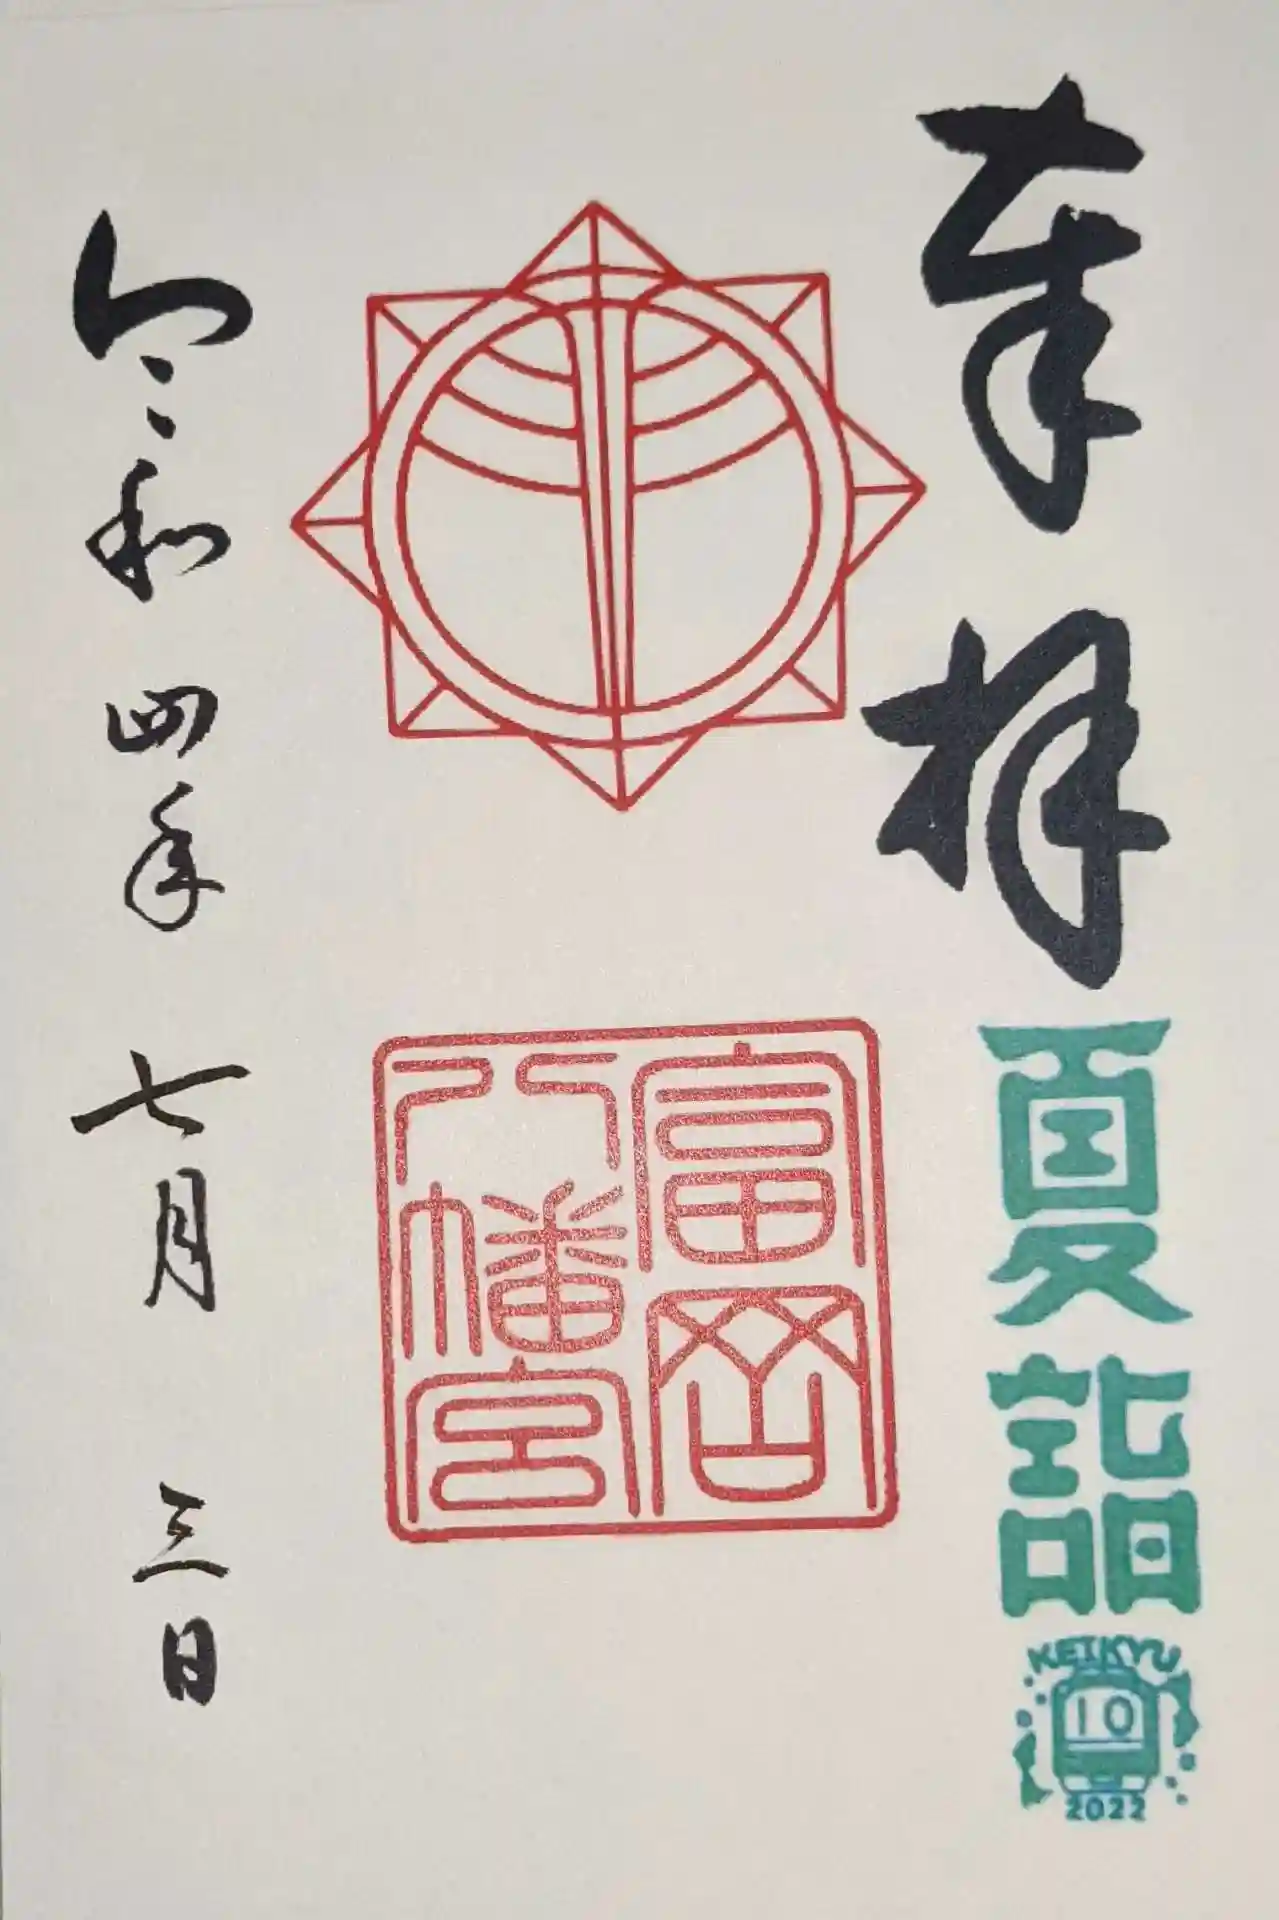 奉拝
夏詣
KEIKYU
10
2022
富岡
八幡宮
令和四年 七月 三日